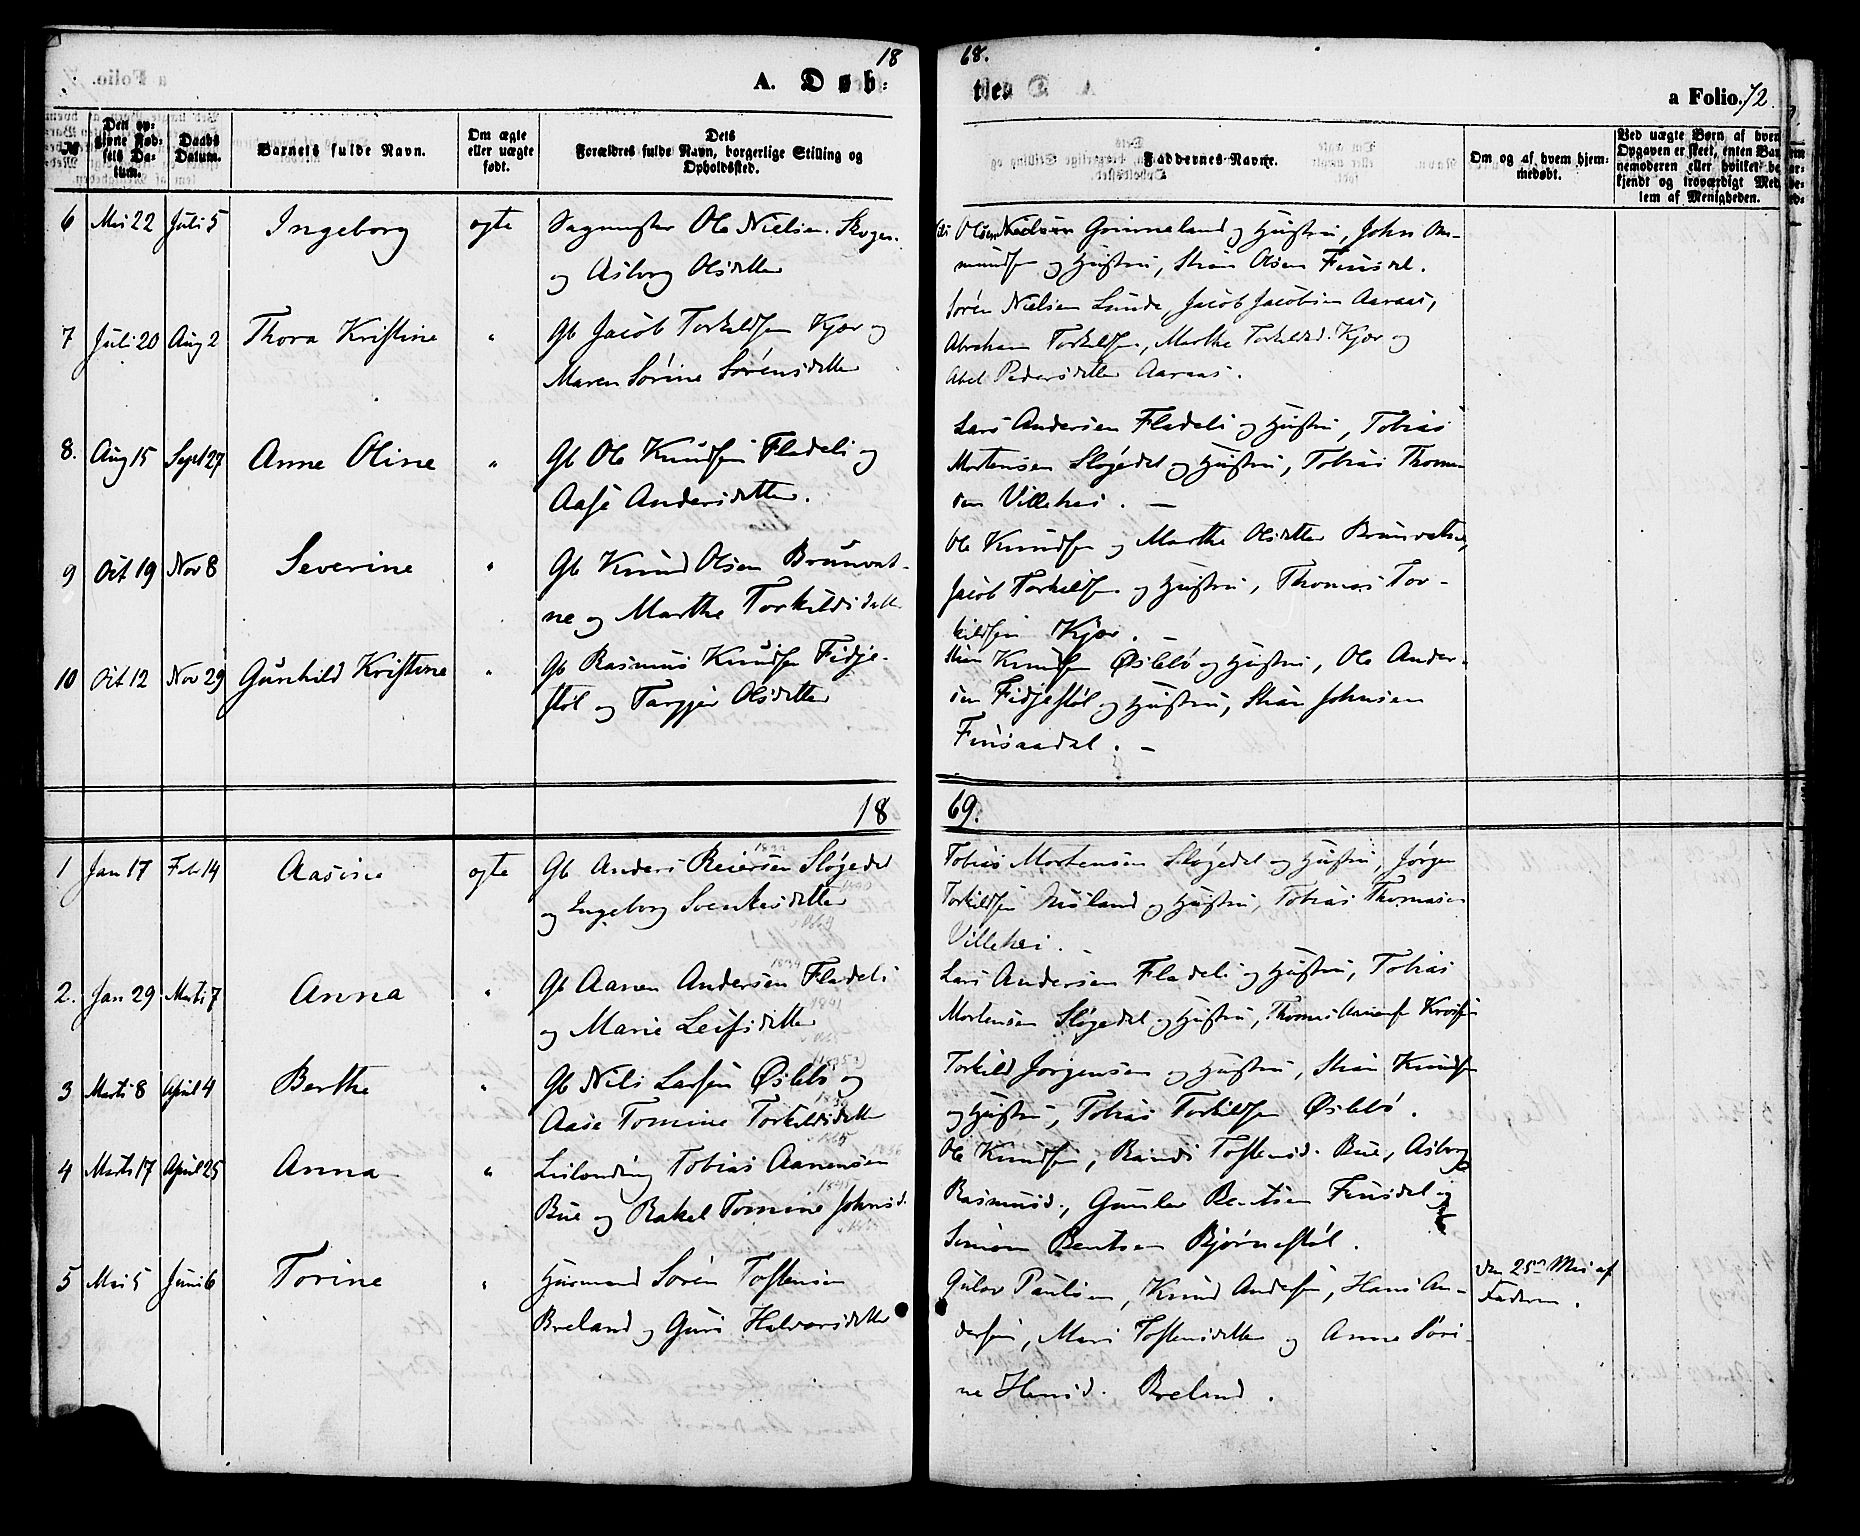 18
68.
A. Døb-
tes
a Folio. 72.
№
Den op-
givne Fød-
sels Da-
tum.
Daabs
Datum.
Barnets fulde Navn.
Om ægte
eller uægte
født.
Dets
Forældres fulde Navn, borgerlige Stilling og
Opholdssted.
Faddernes Navne.
Om og af hvem hjem-
medøbt.
Ved uægte Børn af hvem
Opgaven er skeet, enten Bar-
nemoderen eller hvilket be-
kjendt og troværdigt Med-
lem af Menigheden.
6 Mai 22 Juli 5 Ingeborg ægte Sagmester Ole Nielsen Skogen
og Asborg Olsdatter
Nielsen Grimneland og Hustru, John Am-
mundsen og Hustru, Stian Olsen Fiusdal.
7 Juli 20 Aug 2 Thora Kristine " Gb Jacob Torkildsen Kjær og
Maren Sörine Sörensdatter
Sören Nielsen Lunde, Jacob Jacobsen Aaraas,
Abraham Torkildsen, Marthe Torkildsd. Kjær og
Abel Pedersdatter Aaraas.
8. Aug 15 Sept 27 Anne Oline " Gb Ole Knudsen Fladeli og
Aase Andersdatter.
Lars Andersen Fladeli og Hustru, Tobias
Mortensen Sløgedal og Hustru, Tobias Thomas-
sen Villehei. —
9 Oct 19 Nov 8 Severine " Gb Knud Olsen Brunvat-
ne og Marthe Torkildsdatter
Ole Knudsen og Marthe Olsdatter Brunvatne,
Jacob Torkildsen og Hustru, Thomas Tor-
kildsen Kjær. —
10 Oct 12 Nov 29 Gunhild Kristine " Gb Rasmus Knudsen Fidje-
støl og Targjer Olsdatter
Stian Knudsen Øslebö og Hustru, Ole Ander-
sen Fidjestøl og Hustru, Stian Johnsen
Fiusaadal. —
18
69.
1 Jan 17 Feb 14 Aasine ægte Gb Anders Reiersen Sløgedal
og Ingeborg Svenkesdatter
Tobias Mortensen Sløgedal og Hustru, Jörgen
Torkildsen og Hustru, Tobias Thomasen
Villehei.
2. Jan 29 Marts 7 Anna " Gb Aanen Andersen Fladeli
og Marie Leifsdatter
Lars Andersen Fladeli og Hustru, Tobias
Mortensen Sløgedal og Hustru, Thomas
3 Marts 8 April 4 Berthe " Gb Nils Larsen Øslebö og
Aase Tomine Torkildsdatter
Torkild Jörgensen og Hustru, Stian Knudsen
og Hustru, Tobias Torkildsen Øslebö.
4 Marts 17 April 25 Anna " Leilænding Tobias Aanensen
Bue og Rakel Tomine Johnsd.
Ole Knudsen, Randi Tostensd. Bue, Asborg
Rasmusd., Gunler Bentsen Fiusdal og
Simon Bentsen Bjørnestøl.
5 Mai 5 Juni 6 Torine " Husmand Sören Tostensen
Breland og Guri Halvorsdatter
Gulov Paulsen, Knud Andersen, Hans An-
dersen, Mari Tostensdatter og Anne Söri-
ne Hansd. Breland.
den 25de Mai af
Faderen.